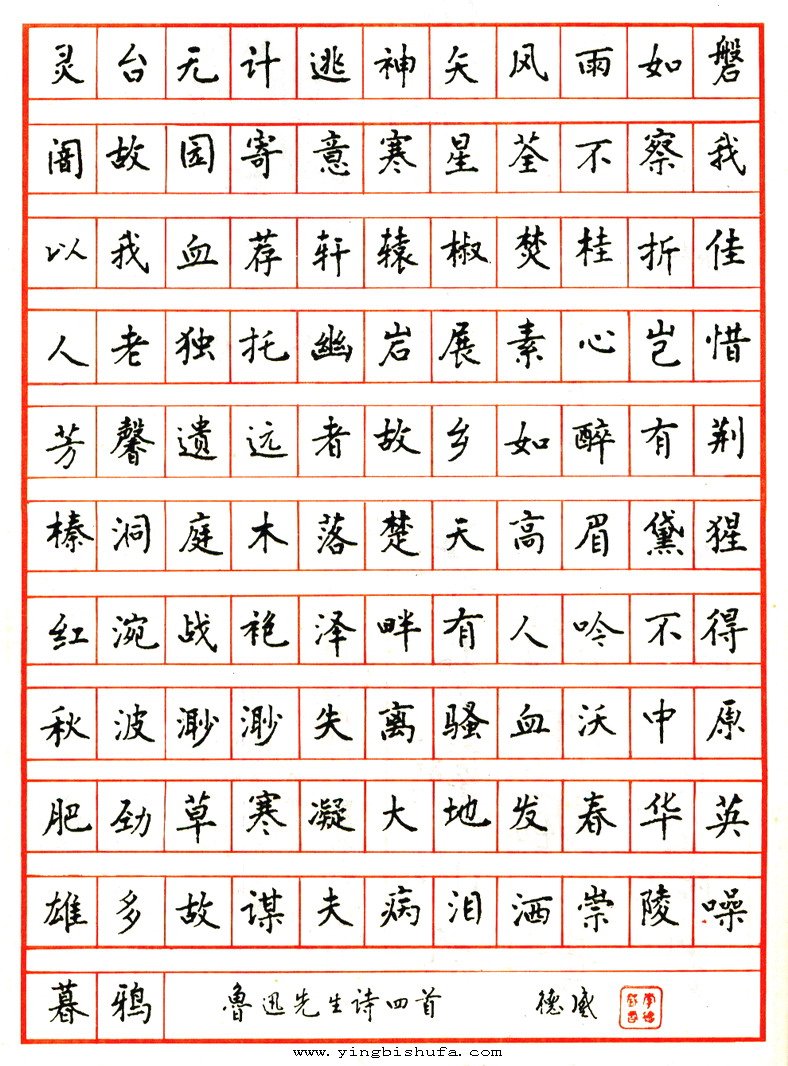 灵台无计逃神矢风雨如磐
闇故园寄意寒星荃不察我
以我血荐轩辕椒焚桂折佳
人老独托幽岩展素心岂惜
芳馨遗远者故乡如醉有荆
榛洞庭木落楚天高眉黛猩
红涴战袍泽畔有人吟不得
秋波渺渺失离骚血沃中原
肥劲草寒凝大地发春华英
雄多故谋夫病泪洒崇陵噪
暮鸦 鲁迅先生诗四首 德威
www.yingbishufa.com